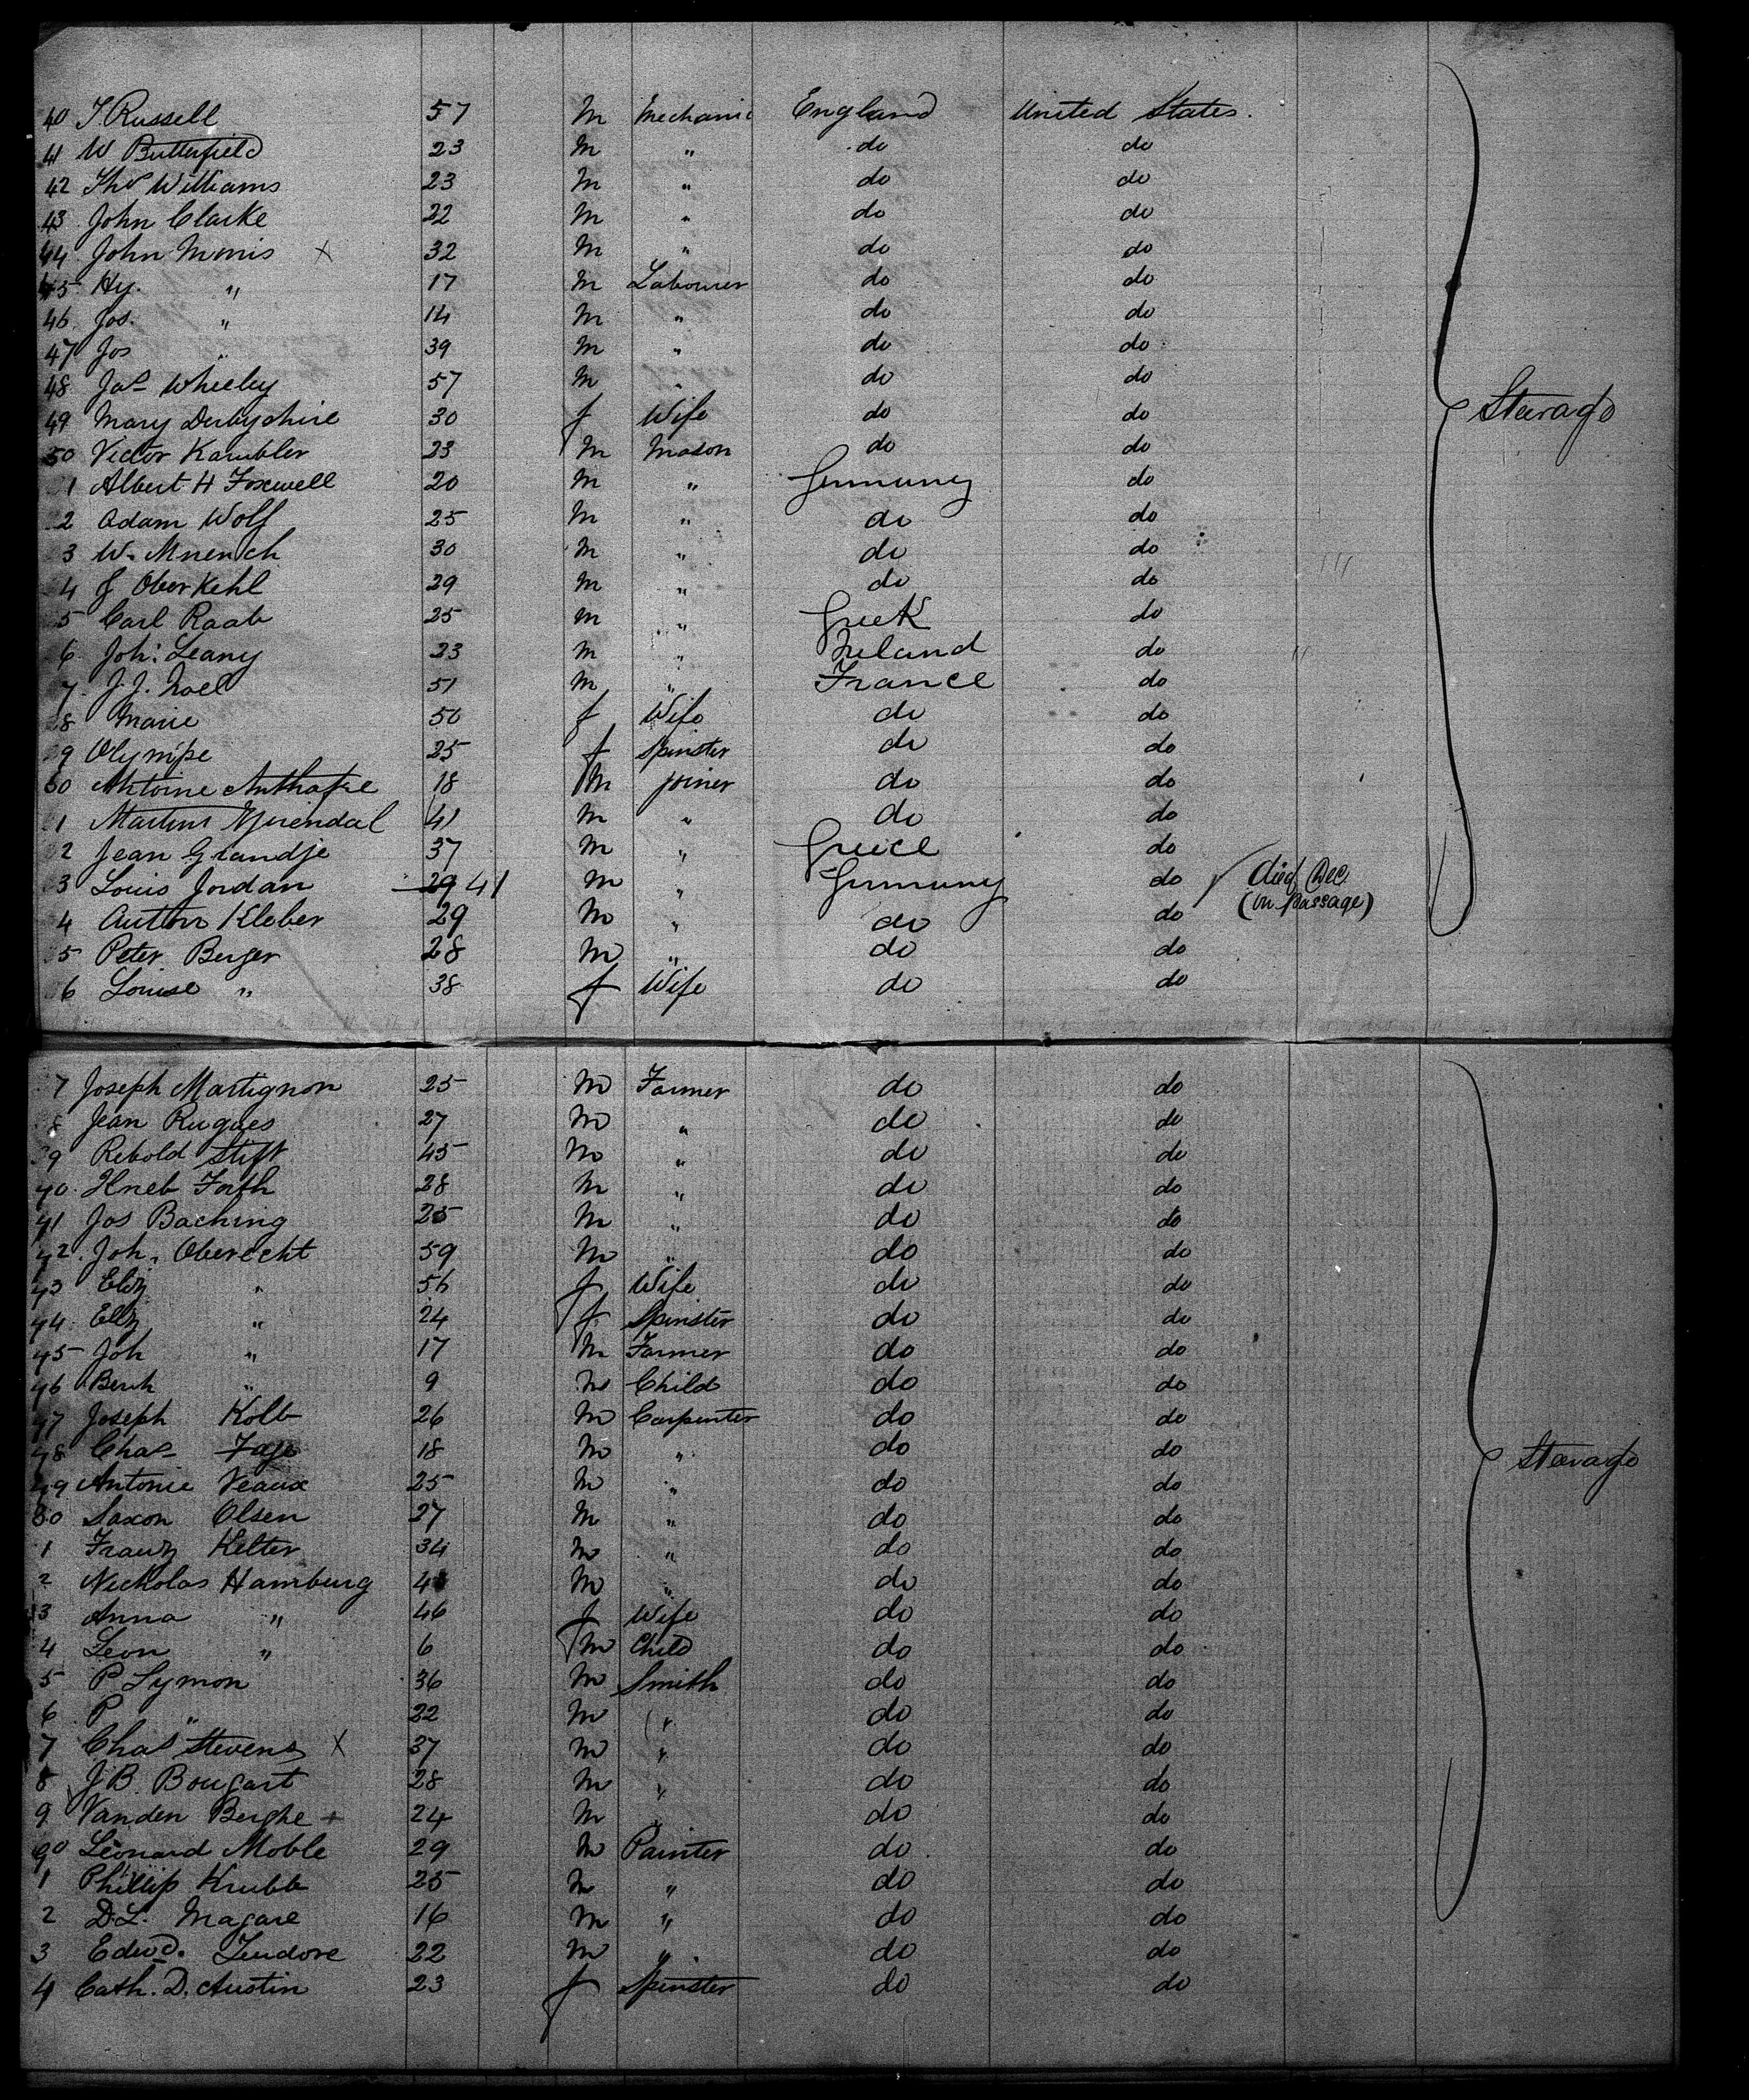 40 T Russell 57 M Mechanic England United States.
41 W Butterfield 23 M " do do
42 Thos Williams 23 M " do do
43 John Clarke 22 M " do do
44 John Morris X 32 M " do do
45 Hy. " 17 M Labourer do do
46 Jos. " 14 M " do do
47 Jos " 39 M " do do
48 Jas Wheeley 57 M " do do
49 Mary Derbyshire 30 f Wife do do Steerage
50 Victor Kambler 23 M Mason do do
1 Albert H Foxwell 20 M " Germany do
2 Adam Wolf 25 M " do do
3 W. Mnench 30 M " do do
4 J Oberkehl 29 M " do do
5 Carl Raab 25 M " Greek do
6 Joh: Leany 23 M " Ireland do
7 J. J. Noel 51 M " France do
8 Marie 50 f Wife do do
9 Olympe 25 f Spinster do do
60 Antoine 18 M joiner do do
1 Martins 41 M " do do
2 Jean Grandje 37 M " Greice do
3 Louis Jordan 29 41 M " Germany do died Dec
4 Anton Kleber 29 M " do do (on passage)
5 Peter Berger 28 M " do do
6 Louise " 38 f Wife do do
7 Joseph Martignon 25 M Farmer do do
8 Jean Rugues 27 M " do do
9 Rebold Stift 45 M " do do
70 Forth 28 M " do do
71 Jos Baching 25 M " do do
72 Joh. Oberecht 59 M " do do
73 Eliz " 56 f Wife do do
74 Eliz " 24 f Spinster do do
75 Joh " 17 M Farmer do do
76 " 9 M Child do do
77 Joseph Kolb 26 M Carpenter do do
78 Chas 18 M " do do Steerage
79 Antonie Veaux 25 M " do do
80 Saxon Olsen 27 M " do do
1 Franz Kelter 34 M " do do
2 Nicholas Hamburg M " do do
3 Anna " 46 f Wife do do
4 Leon " 6 M Child do do
5 P Symon 36 M Smith do do
6 P " 22 M " do do
7 Chas Stevens X 37 M " do do
8 J B Bougart 28 M " do do
9 Vanden Berghe + 24 M " do do
90 Leonard Moble 29 M Painter do do
1 Phillip Krubb 25 M " do do
2 D.L. Magare 16 M " do do
3 Edwd. 22 M " do do
4 Cath. D. Austin 23 f Spinster do do